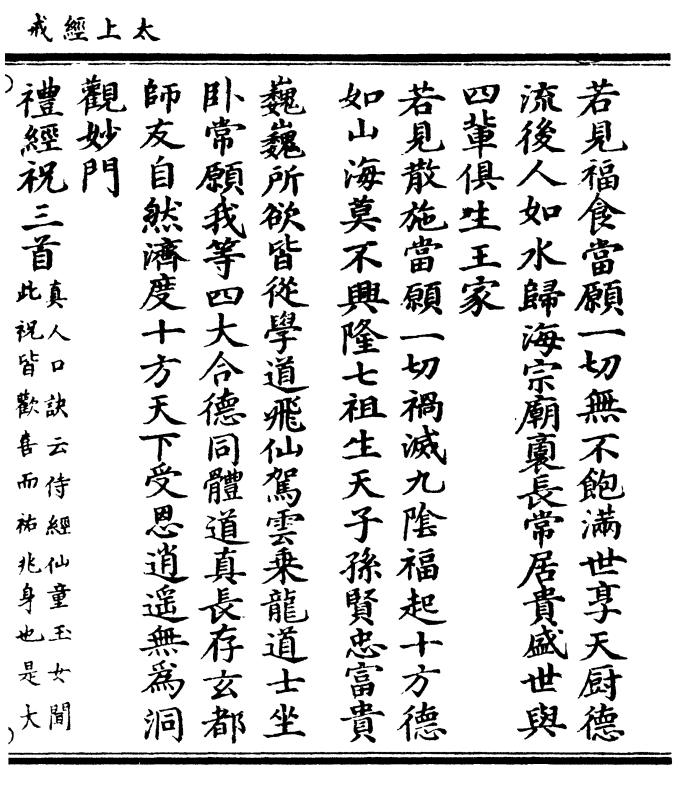 太上經戒
若見福食當願一切無不飽滿世享天厨德
流後人如水歸海宗廟裏長常居貴盛世與
四輩俱生王家
若見散施當願一切禍滅九陰福起十方德
如山海莫不興隆七祖生天子孫賢忠富貴
巍巍所欲皆從學道飛仙駕雲乘龍道士坐
卧常願我等四大合德同體道真長存玄都
師友自然濟度十方天下受恩逍遥無為洞
觀妙門
禮經祝三首
真人口訣云侍經仙童玉女聞
此祝皆歡喜而祐兆身也是大